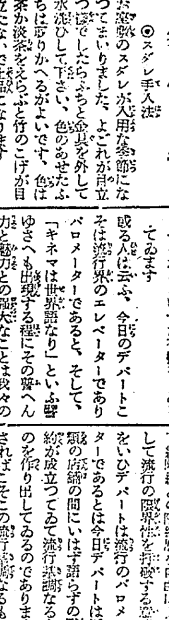 ◎スダレ手入法
お座敷のスダレが入用な季節にな
つてまいりました、よごれが目立
つ様でしたらふちと金具を外して
水洗ひして下さい、色のあせたふ
ちは取りかへるがよいです、色は
茶か淡茶をえらぶと竹のこげが目
立たない
てゐます
或る人は云ふ、今日のデパートこ
そは流行界のエレベーターであり
バロメーターであると、そして、
「キネマは世界語なり」といふ譬
ゆさへも出現する程にその聲へん
力と魅力との強大なことは我々の
して流行の限界性を打破する
をいひデパートは流行のバロメ
ターであるとは今日デパートは
類の店舗の間にいはず語らずの
約が成立つてゐて流行
のを作り出してゐるのでありま
さればこその流行